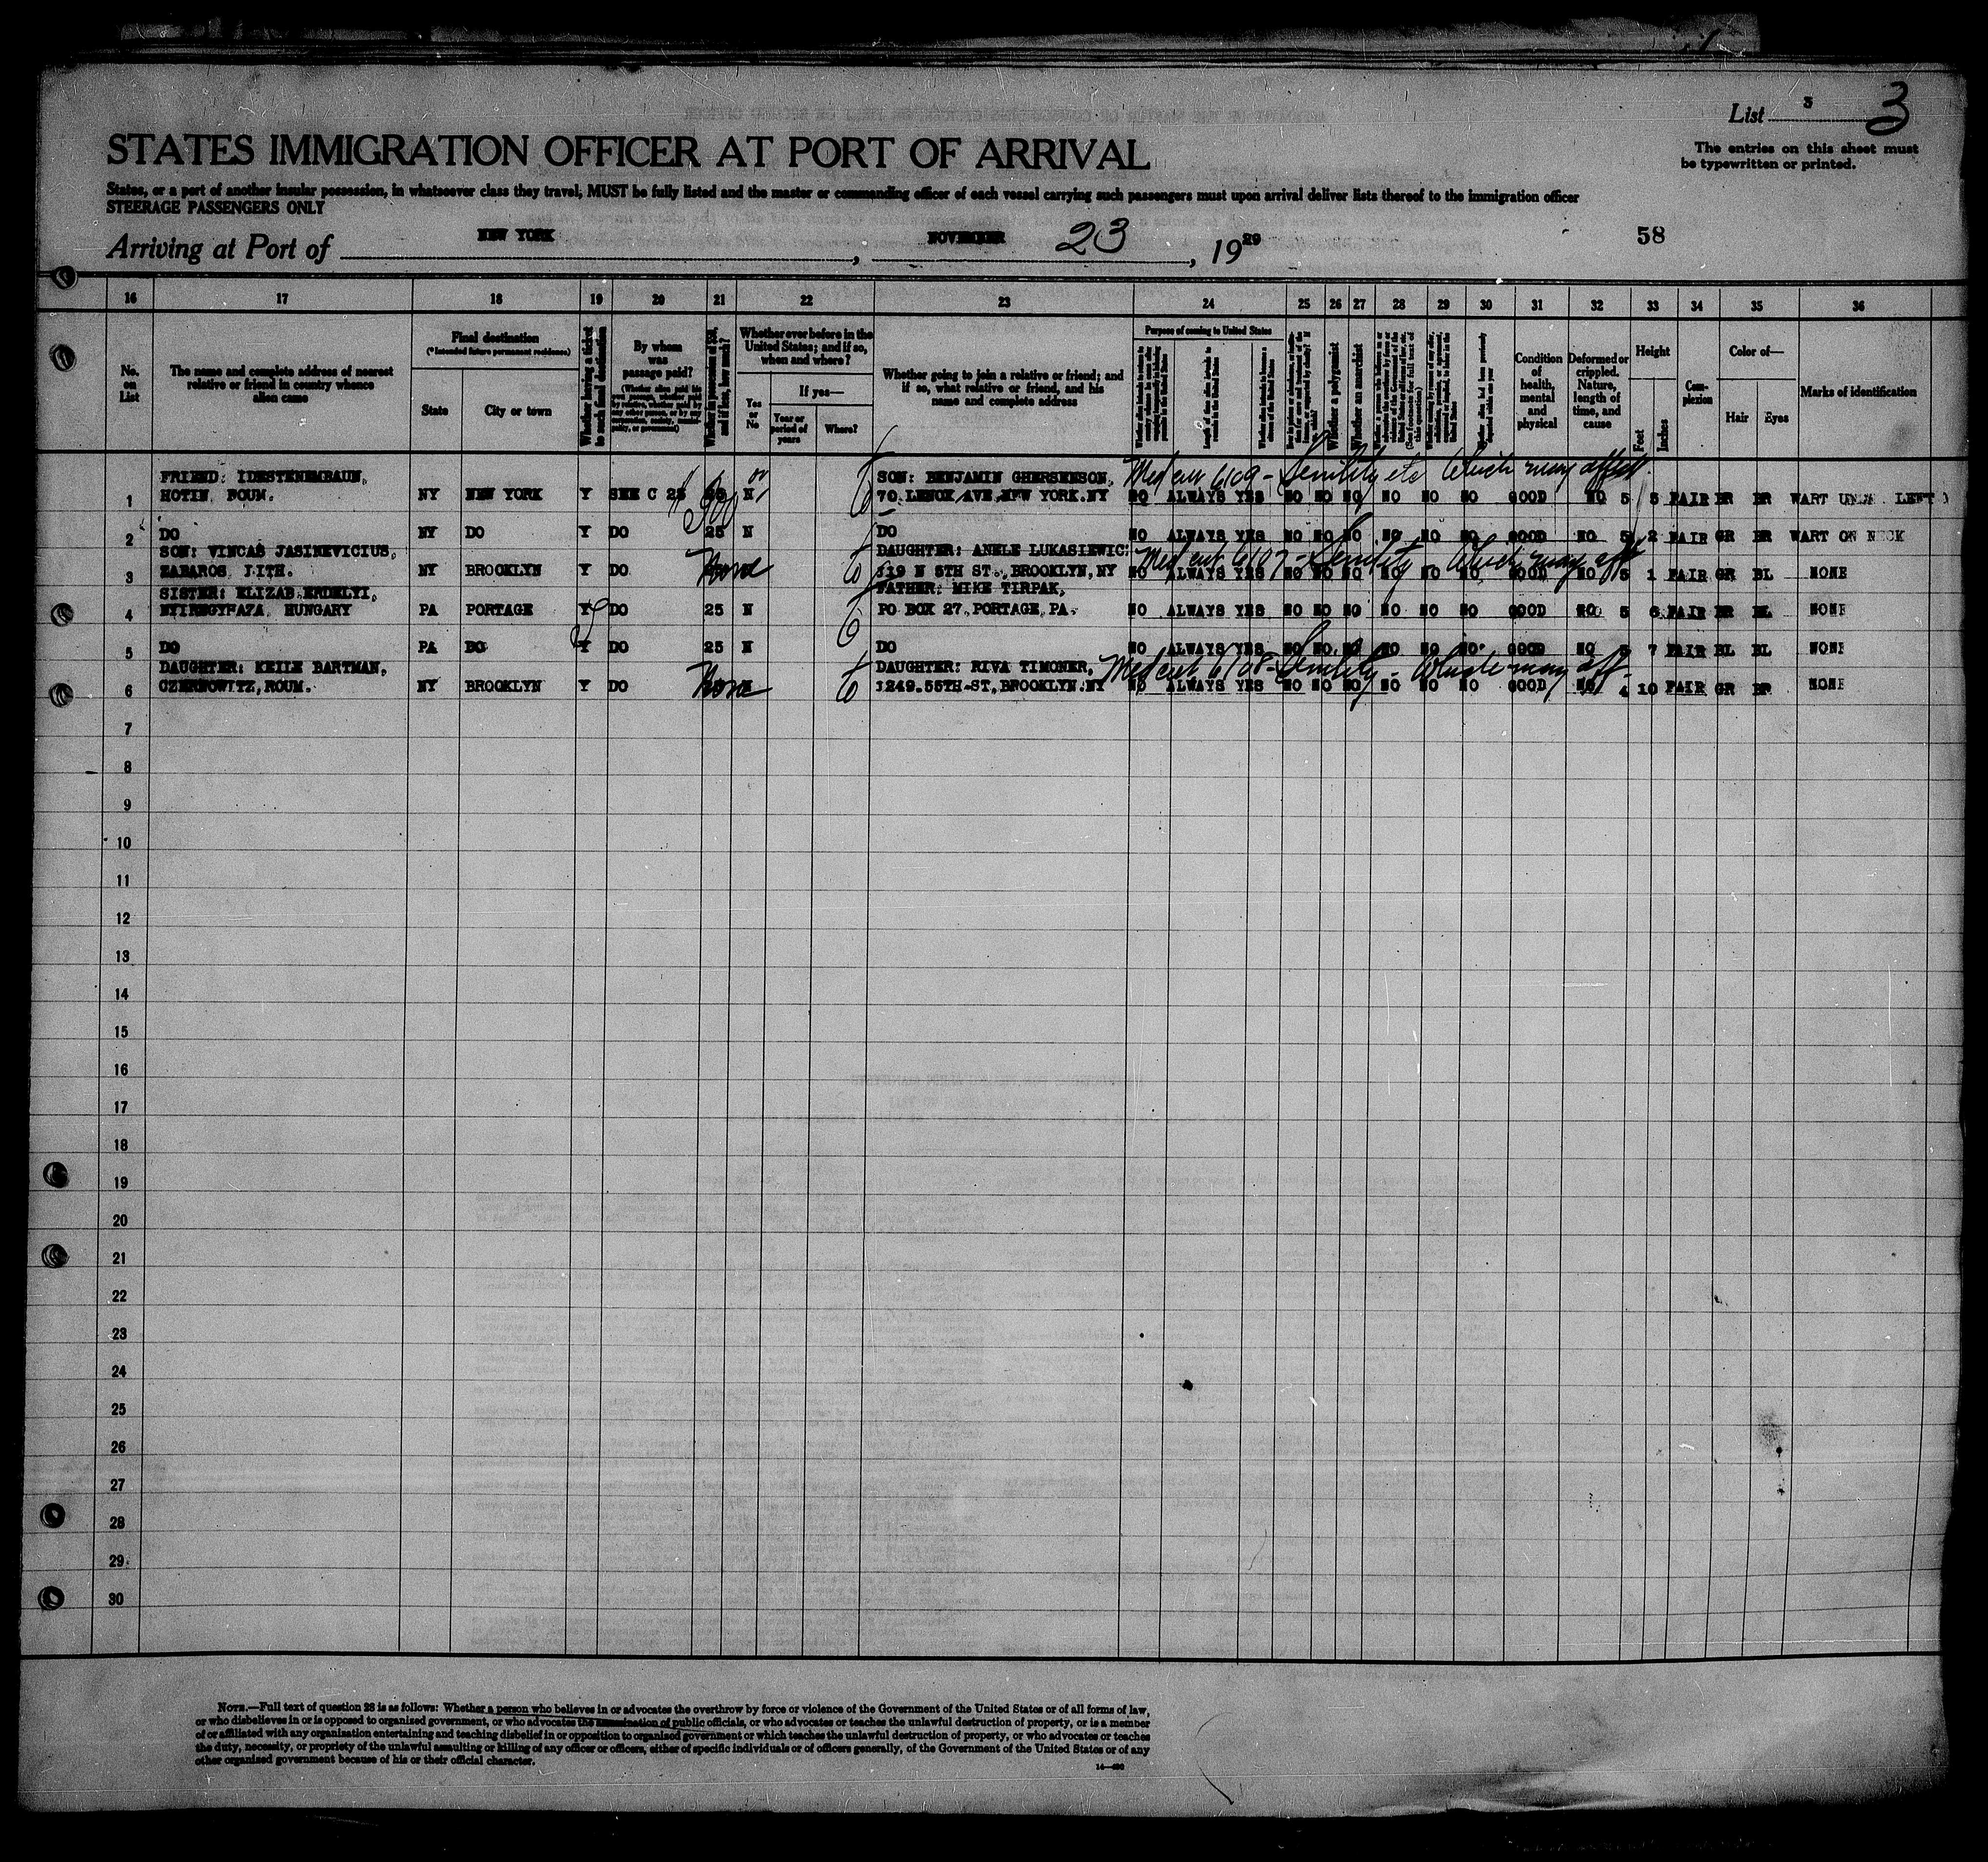 List 3 3
The entries on this sheet must
be typewritten or printed.
STATES IMMIGRATION OFFICER AT PORT OF ARRIVAL
States, or a port of another insular possession, in whatsoever class they travel, MUST be fully listed and the master or commanding officer of each vessel carrying such passengers must upon arrival deliver lists thereof to the immigration officer
STEERAGE PASSENGERS ONLY
Arriving at Port of NEW YORK, NOVEMBER 23, 1929
58
16 17 18 19 20 21 22 23 24 25 26 27 28 29 30 31 32 33 34 35 36
No.
on
List
The name and complete address of nearest
relative or friend in country whence
alien came
Final destination
(*Intended future permanent residence)
State
City or town
Whether having a ticket
to such final destination
By whom
was
passage paid?
Whether in possession of $50,
and if less, how much?
Whether ever before in the
United States; and if so,
when and where?
Yes
or
No
If yes—
Year or
period of
years
Where?
Whether going to join a relative or friend; and
if so, what relative or friend, and his
name and complete address
Purpose of coming to United States
Whether a polygamist
Whether an anarchist
Condition
of
health,
mental
and
physical
Deformed or
crippled.
Nature,
length of
time, and
cause
Height
Feet
Inches
Com-
plexion
Color of—
Hair
Eyes
Marks of identification
FRIEND: IDESTENEMBAUN, SON: BENJAMIN GHERSENSON, Med cert 6109 - Senility etc which may affect
1 HOTIN, ROUM. NY NEW YORK Y SEE C 25 N 70 LENOX AVE, NEW YORK.NY NO ALWAYS YES NO NO NO NO NO NO GOOD NO 5 5 FAIR BR BR WART UNDER LEFT
2 DO NY DO Y DO 25 N DO NO ALWAYS YES NO NO NO NO NO NO GOOD NO 5 2 FAIR GR BR WART ON NECK
SON: VINCAS JASINEVICIUS, DAUGHTER: ANELE LUKASIEWIC: Med cert 6107 - Senility - which may aff
3 ZABAROS, LITH. NY BROOKLYN Y DO None 119 N 5TH ST., BROOKLYN, NY NO ALWAYS YES NO NO NO NO NO NO GOOD NO 5 1 FAIR GR BL NONE
SISTER: ELIZAB.ERDELYI, FATHER: MIKE TIRPAK,
4 NYIREGYHAZA, HUNGARY PA PORTAGE Y DO 25 N PO BOX 27, PORTAGE, PA. NO ALWAYS YES NO NO NO NO NO NO GOOD NO 5 6 FAIR BR BL NONE
5 DO PA DO Y DO 25 N DO NO ALWAYS YES NO NO NO NO NO NO GOOD NO 5 7 FAIR BL BL NONE
DAUGHTER: KEILE BARTMAN, DAUGHTER: RIVA TIMONER, Med cert 6108 - Senility - which may aff
6 CZERNOWITZ, ROUM. NY BROOKLYN Y DO None 1249.55TH-ST, BROOKLYN.NY NO ALWAYS YES NO NO NO NO NO NO GOOD NO 4 10 FAIR GR BR NONE
7
8
9
10
11
12
13
14
15
16
17
18
19
20
21
22
23
24
25
26
27
28
29
30
NOTE.—Full text of question 28 is as follows: Whether a person who believes in or advocates the overthrow by force or violence of the Government of the United States or of all forms of law,
or who disbelieves in or is opposed to organized government, or who advocates the assassination of public officials, or who advocates or teaches the unlawful destruction of property, or is a member
of or affiliated with any organization entertaining and teaching disbelief in or opposition to organized government or which teaches the unlawful destruction of property, or who advocates or teaches
the duty, necessity, or propriety of the unlawful assaulting or killing of any officer or officers, either of specific individuals or of officers generally, of the Government of the United States or of any
other organized government because of his or their official character.